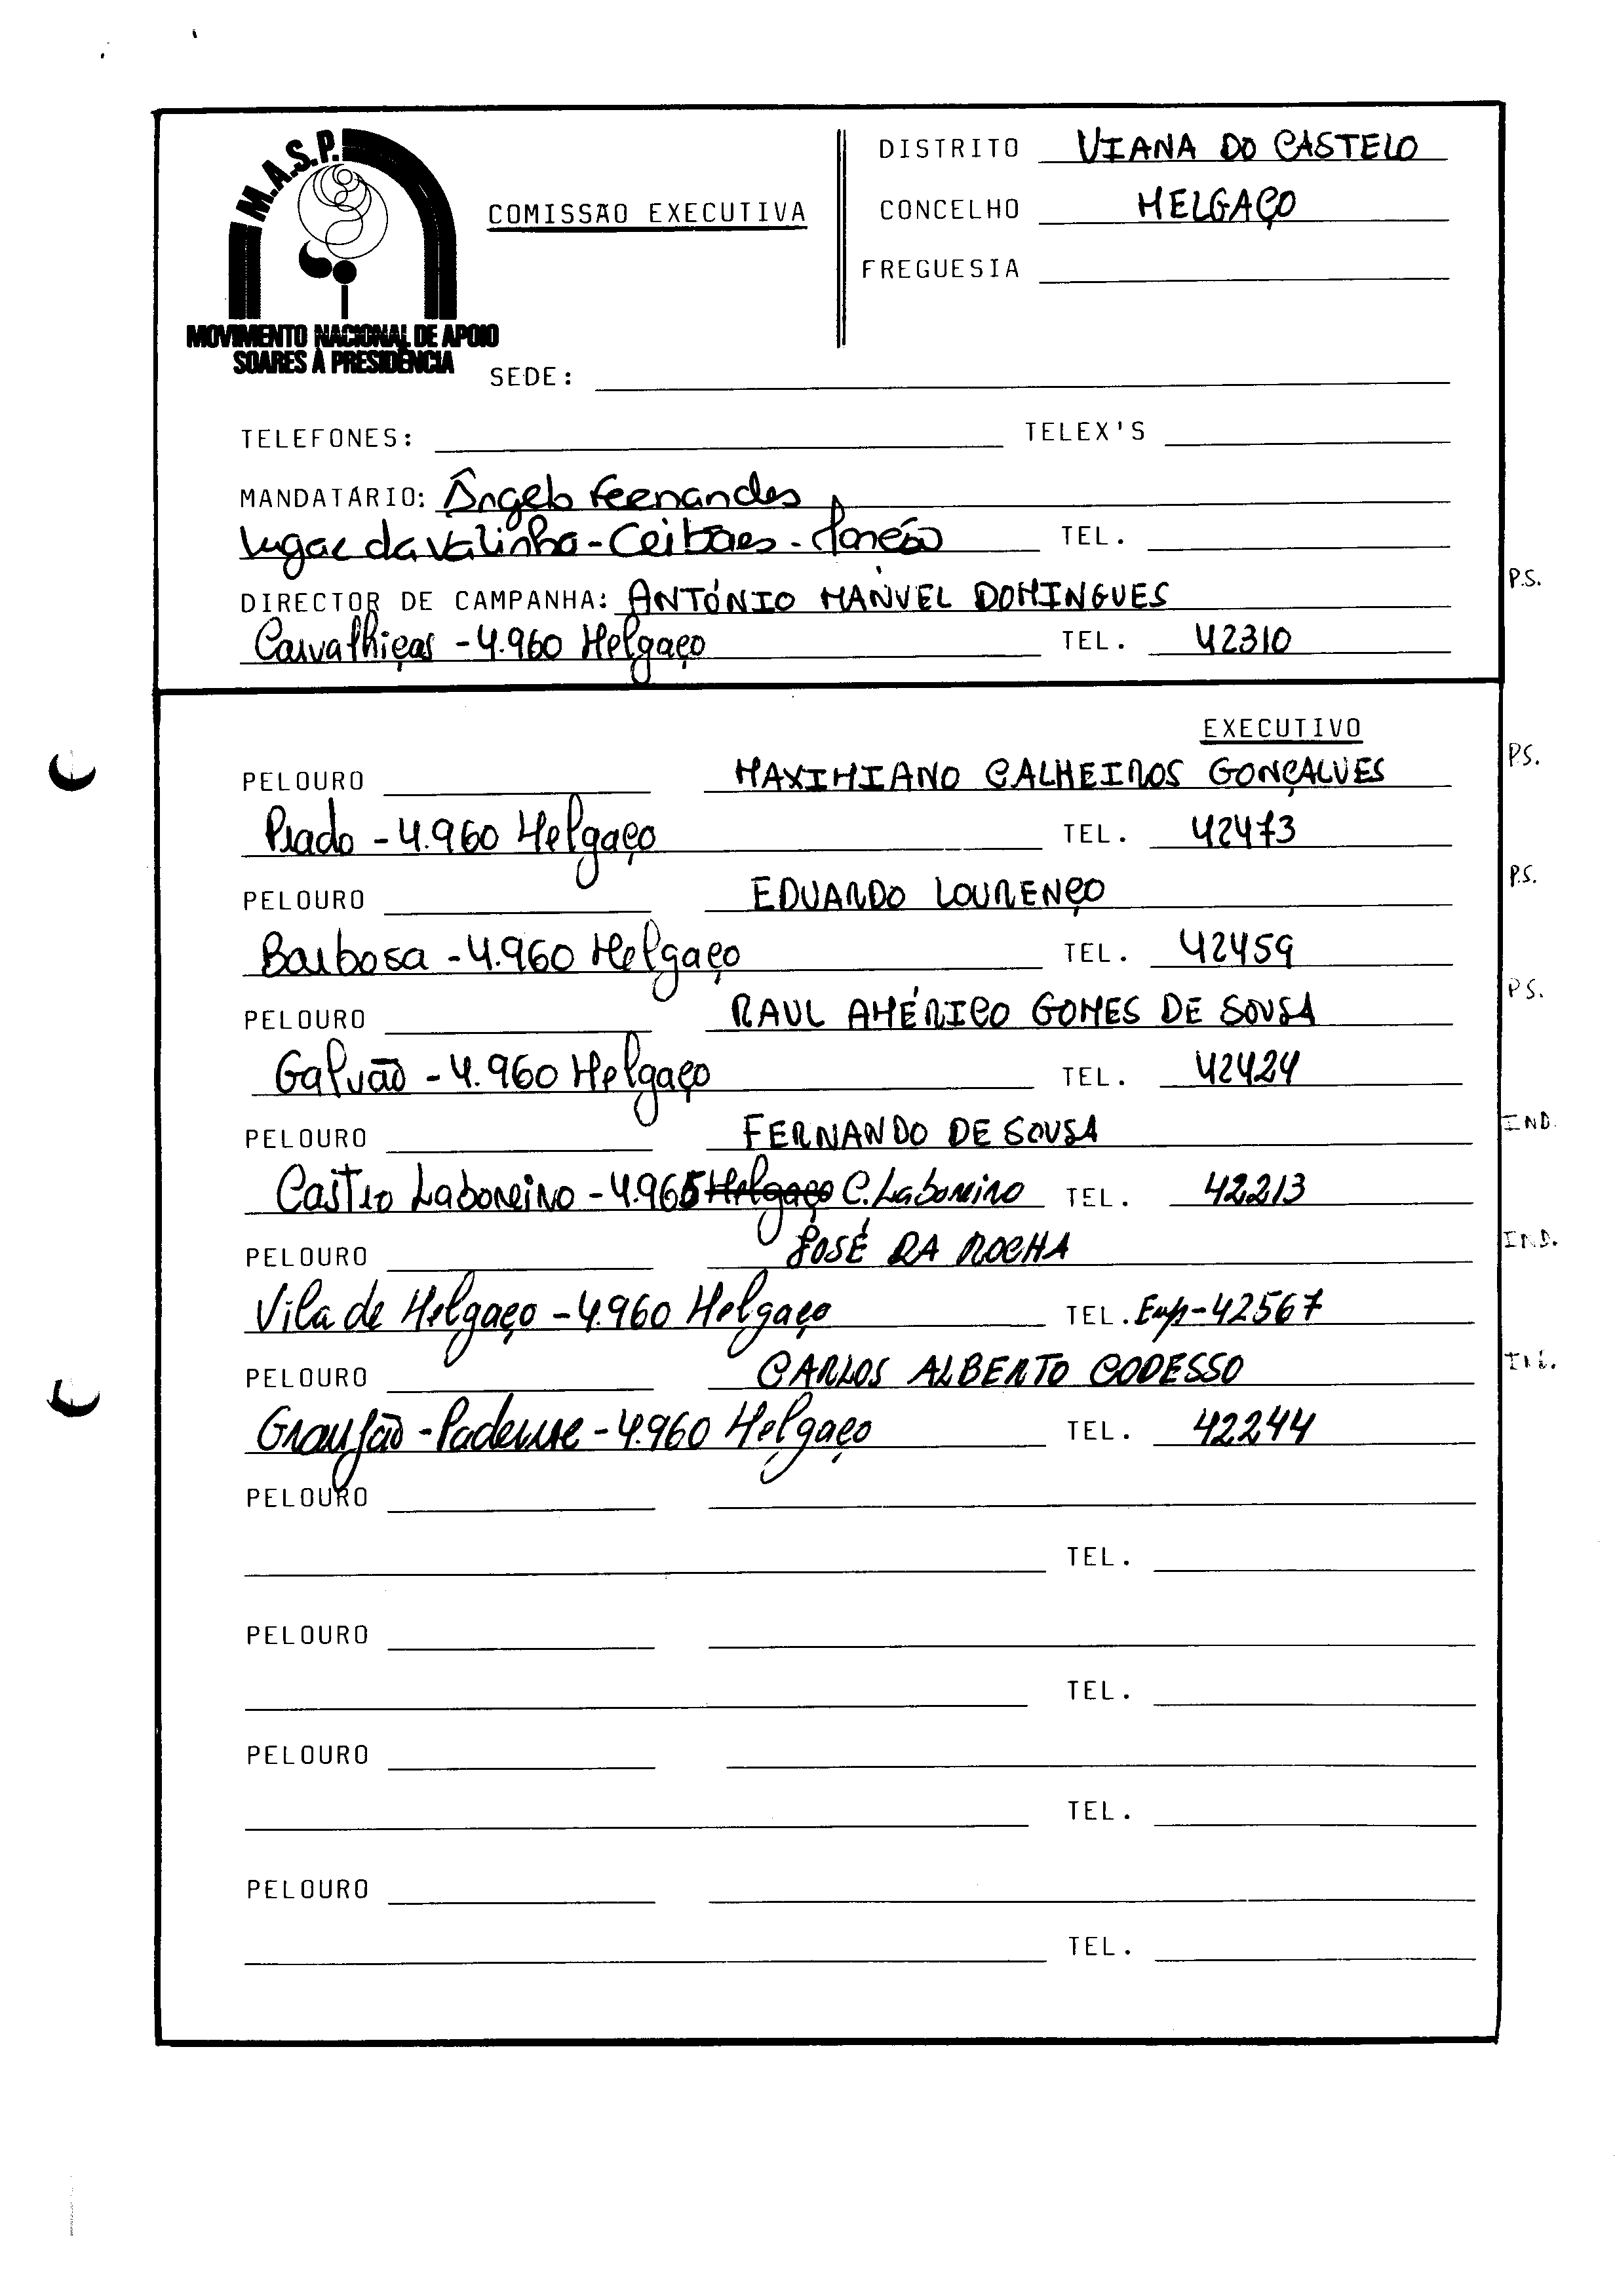 M.A.S.P.
MOVIMENTO NACIONAL DE APOIO
SOARES À PRESIDÊNCIA
COMISSÃO EXECUTIVA
DISTRITO VIANA DO CASTELO
CONCELHO MELGAÇO
FREGUESIA
SEDE:
TELEFONES: TELEX'S
MANDATÁRIO: Ângelo Fernandes
Lugar da Valinha - Ceivães - Monção TEL.
DIRECTOR DE CAMPANHA: ANTÓNIO MANUEL DOMINGUES P.S.
Carvalhiças - 4.960 Melgaço TEL. 42310
EXECUTIVO
PELOURO MAXIMIANO CALHEIROS GONÇALVES P.S.
Prado - 4.960 Melgaço TEL. 42473
PELOURO EDUARDO LOURENÇO P.S.
Barbosa - 4.960 Melgaço TEL. 42459
PELOURO RAUL AMÉRICO GOMES DE SOUSA P.S.
Galvão - 4.960 Melgaço TEL. 42424
PELOURO FERNANDO DE SOUSA IND.
Castro Laboreiro - 4.965 Melgaço C. Laboreiro TEL. 42213
PELOURO JOSÉ DA ROCHA IND.
Vila de Melgaço - 4.960 Melgaço TEL. Emp - 42567
PELOURO CARLOS ALBERTO CODESSO IND.
- Paderne - 4.960 Melgaço TEL. 42244
PELOURO
TEL.
PELOURO
TEL.
PELOURO
TEL.
PELOURO
TEL.